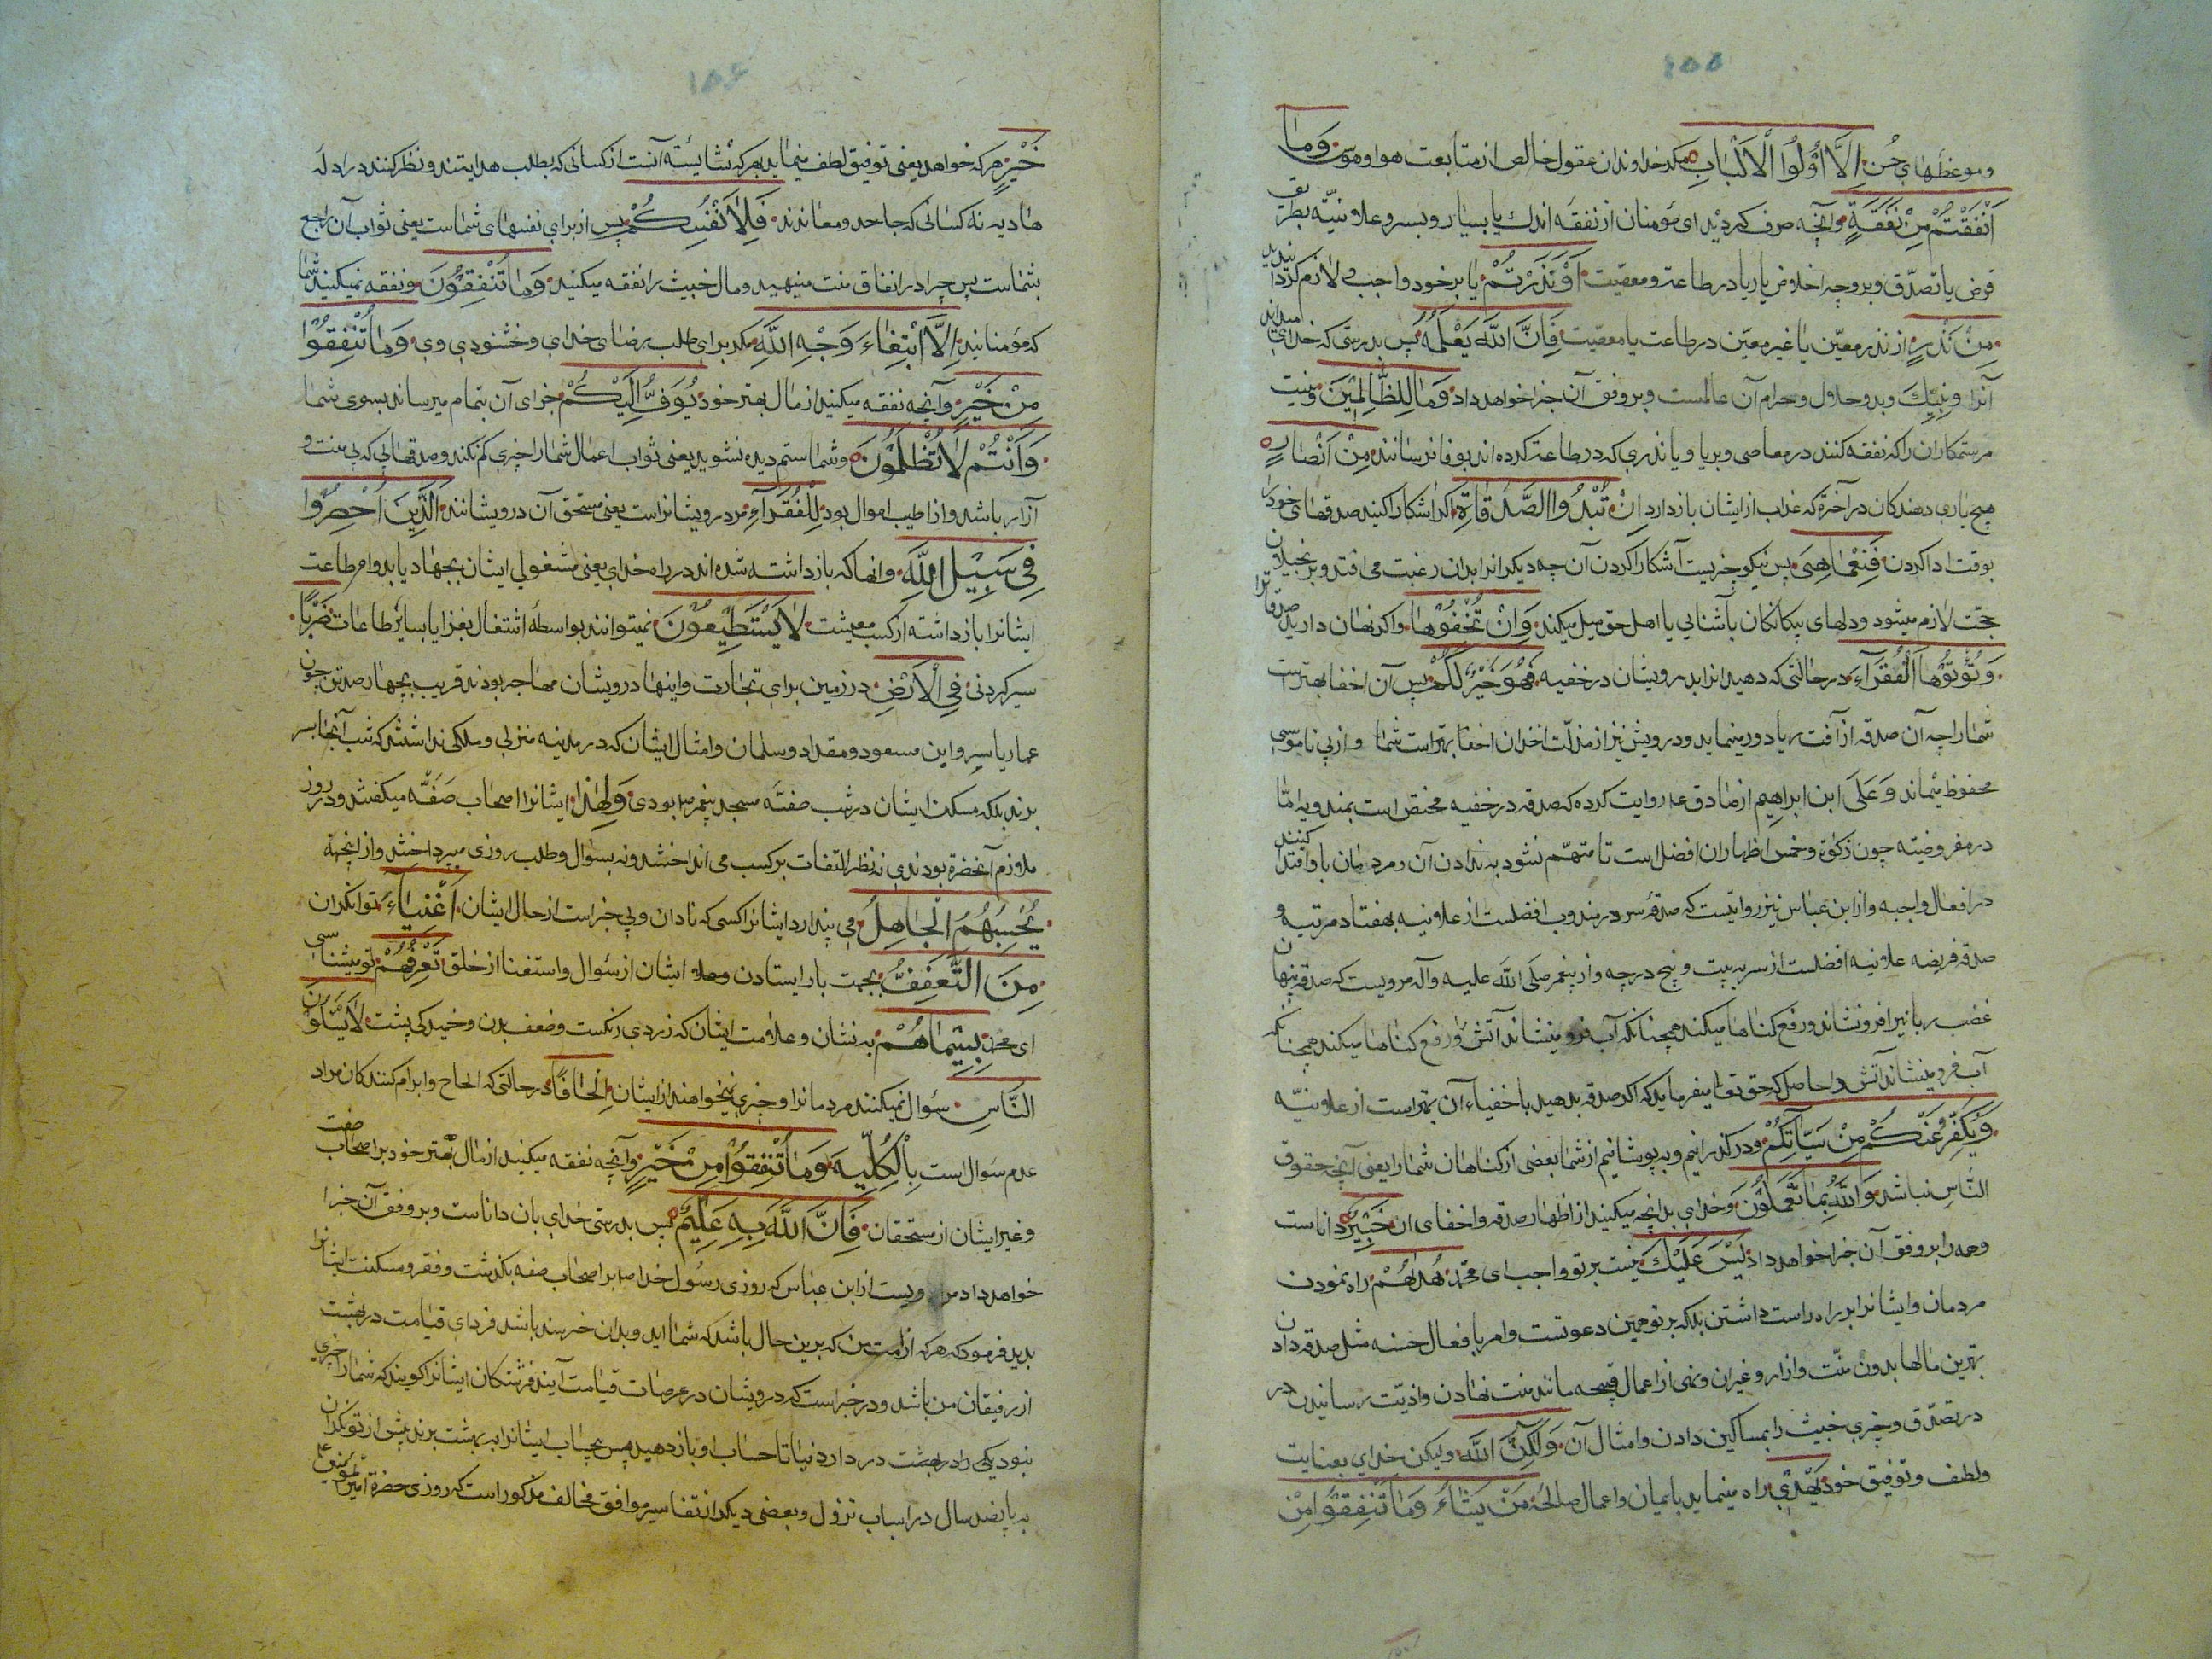 ۱۵۵
وموعظهای حسن اِلَّا اُولُوا الْاَلْبٰابِ مکر خداوندان عقول خالص از متابعت هوا وهوس وَمٰا
اَنْفَقْتُمْ مِنْ نَفَقَةٍ وانچه صرف کردید ای مؤمنان از نفقه اندك یا بسیار و بسر وعلانیّه بطریق
قرض یا تصدّق وبروجه اخلاص یا ریا در طاعت ومعصیّت اَوْنَذَرْتُمْ یا بر خود واجب ولازم کردانیدید
مِنْ نَذْرٍ از نذر معیّن یا غیر معیّن در طاعت یا معصیّت فَاِنَّ اللّٰهَ یَعْلَمُهُ پس بدرستی که خدای میداند
آنرا وبنیك وبد وحلال وحرام آن عالمست وبروفق آن جزا خواهد داد وَمٰا لِلظّٰالِمٖینَ ونیست
مرستمکاران را که نفقه کنند در معاصی وبریا ویا نذری که در طاعت کرده اند بوفا نرسانند مِنْ اَنْصٰارٍ
هیچ یاری دهندکان در آخرة که عذاب از ایشان بازدارد اِنْ تُبْدُوا الصَّدَقٰاتِ اکر اشکارا کنید صدقهای خود را
بوقت ادا کردن فَنِعِمّٰا هِیَ پس نیکو چیزیست آشکارا کردن آن چه دیکرانرا بدان رغبت می افتد وبر بخیلان
حجّت لازم میشود ودلهای بیکانکان بآشنائی یا اهل حق میل میکند وَاِنْ تُخْفُوهٰا واکر نهان دارید صدقاترا
وَتُؤْتُوهَا الْفُقَرٰآءَ در حالتی که دهید انرا بدرویشان در خفیه فَهُوَ خَیْرٌ لَکُمْ پس آن اخفا بهتر است
شما را چه آن صدقه از آفت ریا دور مینماید ودرویش نیز از مذلّت اخذ ان اخفا بهتر است شما واز بی ناموسی
محفوظ میماند وَعَلَی ابن ابراهیم از صادق ع روایت کرده که صدقه در خفیه مختص است بمندوبه امّا
در مفروضیّه چون زکوٰة وخمس اظهار ان افضل است تا متهّم نشود به ندادن آن ومردمان باو اقتدا کنند
در افعال واجبه واز ابن عباس نیز روایتست که صدقهٔ سر در مندوب افضلست از علانیه بهفتاد مرتبه و
صدقه فریضه علانیه افضلست از سر به بیست وپنج درجه واز پیغمبر صلّی الله علیه وآله مرویست که صدقه پنهان
غضب ربانیرا فرونشاند ورفع کناهها میکند همچنانکه آب فرو مینشاند آتش را ورفع کناهها میکند همچنانکه
آب فرو مینشاند آتش را حاصل که حق تعٰ میفرماید که اکر صدقه بدهید باخفیاء آن بهتر است از علانیّه
وَیُکَفِّرُ عَنْکُمْ مِنْ سَیِّاٰتِکُمْ ودر کذرانیم وبپوشانیم از شما بعضی از کناهان شما را یعنی آنچه حقوق
النّاس نباشد وَاللّٰهُ بِمٰا تَعْمَلُونَ وخدای بدانچه میکنید از اظهار صدقه واخفای ان خَبٖیرٌ داناست
وهمه را بروفق آن جزا خواهد داد لَیْسَ عَلَیْكَ نیست بر تو واجب ای محمّد هُدٰیهُمْ راه نمودن
مردمان وایشانرا بر راه راست داشتن بلکه بر تو همین دعوتست وامر بافعال حسنه مثل صدقه دادن
بهترین مالها بدون منّت وازار وغیر ان ونهی از اعمال قبیحه مانند منت نهادن واذیّت رسانیدن در
در تصدّق وچیزی خبیث را بمساکین دادن وامثال آن وَلٰکِنَّ اللّٰهَ ولیکن خدای بعنایت
ولطف وتوفیق خود یَهْدٖی راه مینماید بایمان واعمال صالحه مَنْ یَشٰاءُ وَمٰا تُنْفِقُوا مِنْ
۱۵۶
خَیْرٍ هر که خواهد یعنی توفیق لطف مینماید بهر که شایسته آنست از کسانی که بطلب هدایتند ونظر کنند در ادلّه
هادیه نه کسانی که جاحد ومعاندند فَلِاَنْفُسِکُمْ پس از برای نفسهای شماست یعنی ثواب آن راجع
بشماست پس چرا در انفاق منت مینهید ومال خبیث را نفقه میکنید وَمٰا تُنْفِقُونَ ونفقه نمیکنید شما
که مؤمنانید اِلَّا ابْتِغٰاءَ وَجْهِ اللّٰهِ مکر برای طلب رضای خدای وخشنودی وی وَمٰا تُنْفِقُوا
مِنْ خَیْرٍ وآنچه نفقه میکنید از مال بهتر خود یُوَفَّ اِلَیْکُمْ جزای آن بتمام میرساند بسوی شما
وَاَنْتُمْ لٰا تُظْلَمُونَ وشما ستم دیده نشوید یعنی ثواب اعمال شما را چیزی کم نکند وصدقهائی که بی منت و
آزار باشد واز اطیب اموال بود لِلْفُقَرٰآءِ مر درویشانراست یعنی مستحق آن درویشانند الَّذٖینَ اُحْصِرُوا
فِی سَبٖیلِ اللّٰهِ وانها که بازداشته شده اند در راه خدای یعنی مشغولی ایشان بجهاد یا بدوام طاعت
ایشانرا بازداشته از کسب معیشت لٰا یَسْتَطٖیعُونَ نمیتوانند بواسطهٔ اشتغال بغزا یا بسایر طاعات ضَرْبًا
سیر کردنی فِی الْاَرْضِ در زمین برای تجارت واینها درویشان مهاجر بودند قریب بچهار صد تن چون
عمار یاسر وابن مسعود ومقداد وسلمان وامثال ایشان که در مدینه منزلی وملکی نداشتند که شب آنجا بسر
برند بلکه مسکن ایشان در شب صفّه مسجد پیغمبر ص بودی وَلِهٰذا ایشانرا اصحاب صفّه میکفتند ودر روز
ملازم آنحضرة بودندی نه نظر التفات بر کسب می انداختند ونه بسؤال وطلب روزی میپرداختند واز اینجهة
یَحْسَبُهُمُ الْجٰاهِلُ می پندارد ایشانرا کسی که نادان وبی خبر است از حال ایشان اَغْنِیٰاءَ توانکران
مِنَ التَّعَفُّفِ بجهت باز ایستادن ایشان از سؤال واستغنا از خلق تَعْرِفُهُمْ تو میشناسی
ای محمّد بِسٖیمٰاهُمْ به نشان وعلامت ایشان که زردی رنکست وضعف بدن وخمیدکی پشت لٰا یَسْئَلُونَ
النّٰاسَ سؤال نمیکنند مردمانرا وچیزی نمیخواهند از ایشان اِلْحٰافًا در حالتی که الحاح وابرام کنندکان مراد
عدم سؤال است بِالْکُلِّیَه وَمٰا تُنْفِقُوا مِنْ خَیْرٍ وآنچه نفقه میکنید از مال بهتر خود بر اصحاب صفّه
وغیر ایشان از مستحقان فَاِنَّ اللّٰهَ بِهٖ عَلٖیمٌ پس بدرستی خدای بان داناست وبروفق آن جزا
خواهد داد مرویست از ابن عباس که روزی رسُول خدا ص بر اصحاب صفه بکذشت وفقر ومسکنت ایشانرا
بدید فرمود که هر که از امت من که برین حال باشد که شمااید وبدان خرسند باشد فردای قیامت در بهشت
از رفیقان من باشد ودر خبر است که درویشان در عرصات قیامت آیند فرشتکان ایشانرا کویند که شما را چیزی
نبود در دار دنیا تا حساب او بازدهید پس بیحساب ایشانرا به بهشت برند پیش از توانکران
به پانصد سال در اسباب نزول وبعضی دیکر از تفاسیر موافق مخالف مذکور است که روزی حضرة امیر المؤمنین ع